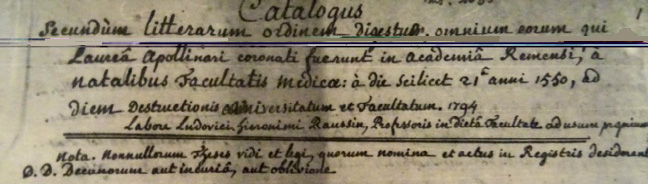 Catalogus
Secundùm litterarum ordinem digestus omnium eorum qui
Laureâ Apollinari coronati fuerunt in academiâ Remensi, à
natalibus Facultatis medicæ: à die scilicet 21ª anni 1550, ad
diem Destructionis universitatum et Facultatum. 1794
Labore Ludovici hieronimi Raussin, Professoris in dictâ Facultate ad usum
Nota. Nonnullorum Theses vidi et legi, quorum nomina et actus in Registris desiderant
D. D. Decanorum aut incuriâ, aut oblivione